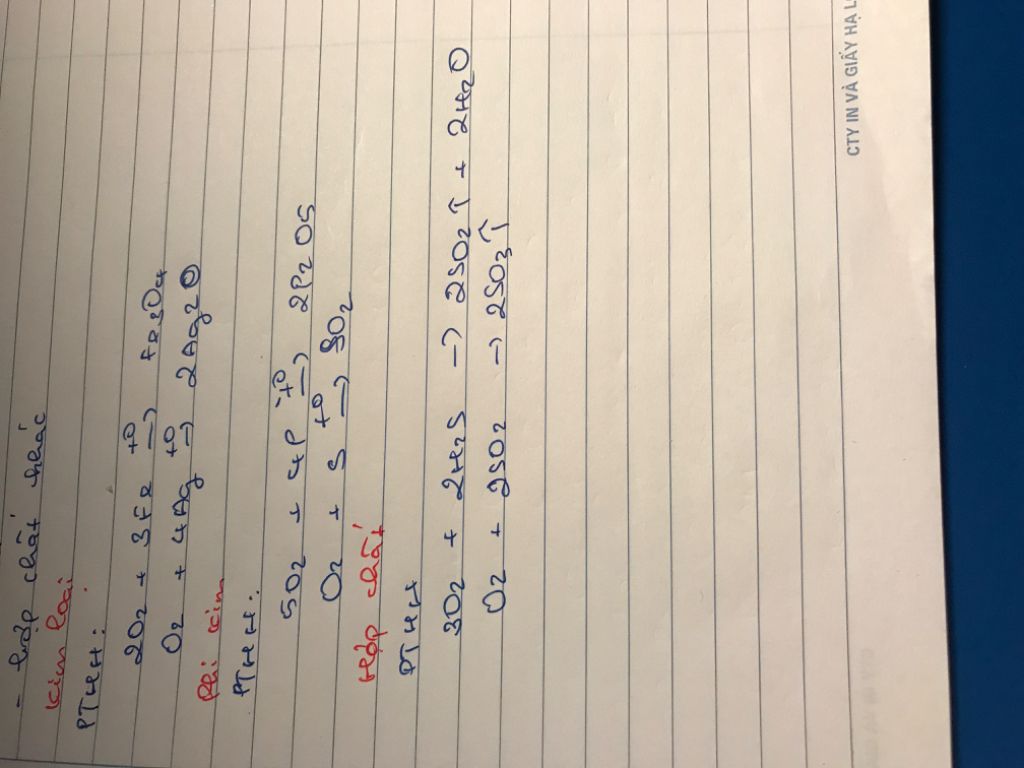 - hợp chất khác
Kim loại
PTHH:
2O2 + 3Fe t0 → Fe3O4
O2 + 4Ag t0 → 2Ag2O
Phi kim
PTHH:
5O2 + 4P t0 → 2P2O5
O2 + S t0 → SO2
Hợp chất
PTHH
3O2 + 2H2S → 2SO2↑ + 2H2O
O2 + 2SO2 → 2SO3↑